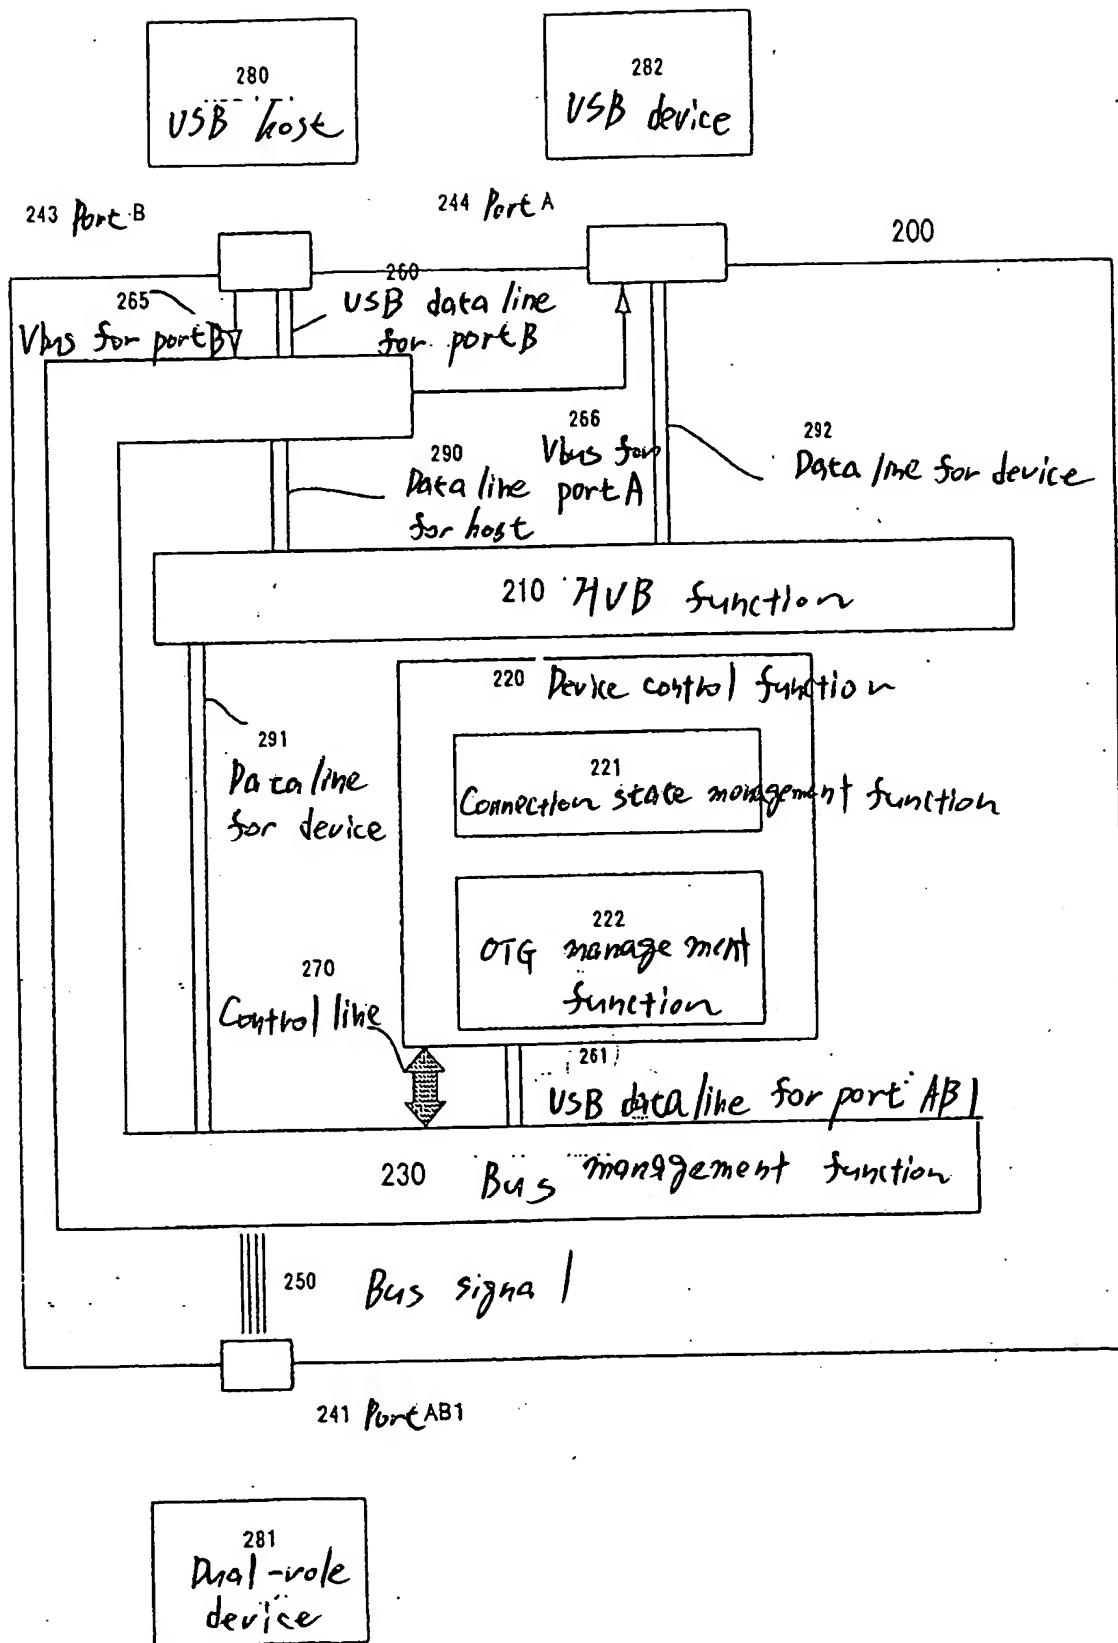 280
USB host
282
USB device
243 Port B
244 Port A
200
265
Vbus for port B
260
USB data line
for port B
290
Data line
for host
266
Vbus for
port A
292
Data line for device
210 HUB function
220 Device control function
221
Connection state management function
222
OTG management
function
291
Data line
for device
270
Control line
261
USB data line for port AB1
230 Bus management function
250 Bus signal
241 Port AB1
281
Dual-role
device